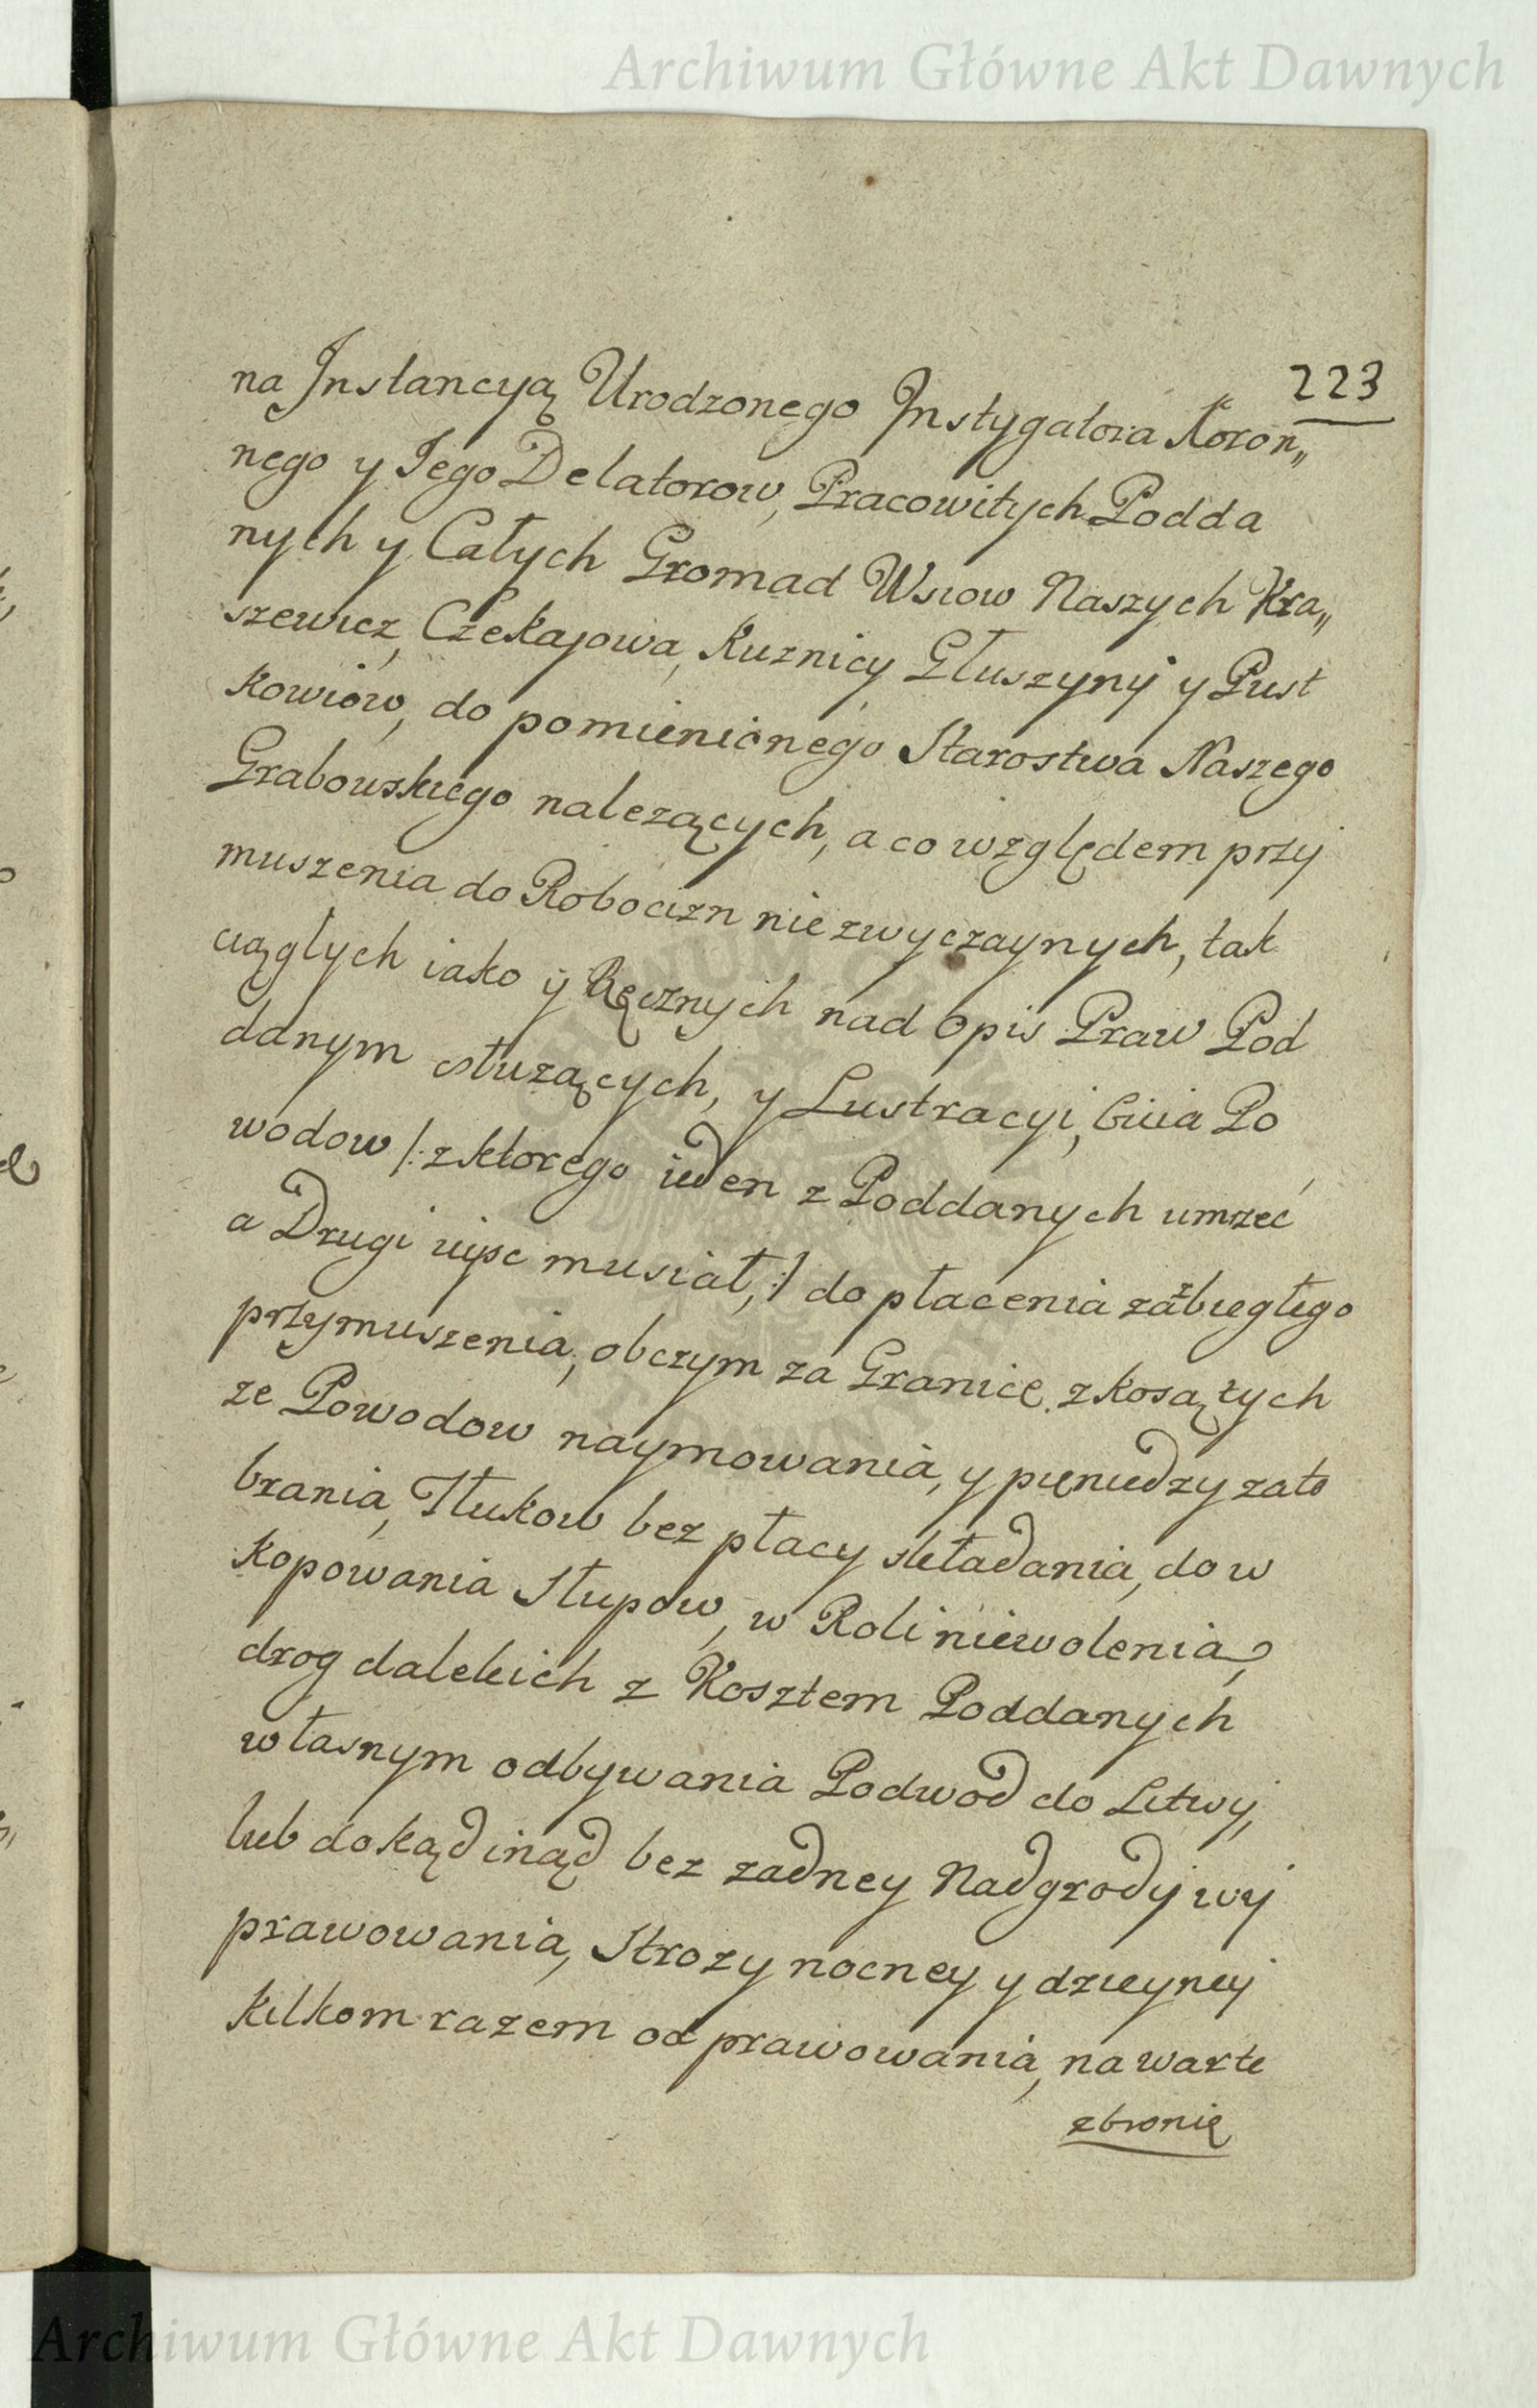 Archiwum Główne Akt Dawnych
223
na Instancyą Urodzonego Instygatora Koron„
nego y Jego Delatorow, Pracowitych Podda
nych y Całych Gromad Wsiow Naszych Kra„
szewicz, Czekajowa, Kuznicy Głuszyny y Pust
kowiów, do pomienionego Starostwa Naszego
Grabowskiego nalezących, a co względem przy
muszenia do Robocizn niezwyczaynych, tak
ciągłych iako y Ręcznych nad opis Praw Pod
danym słuzących, y Lustracyi, bicia Po
wodow /: z ktorego ieden z Poddanych umrzeć
a Drugi uyśc musiał, :/ do płacenia za zbiegłego
przymuszenia, obczym za Granicę z kosą tych
ze Powodow naymowania, y pieniedzy zato
brania, Tłukow bez płacy składania, do w
kopowania Słupow, w Roli niewolenia,
drog dalekich z Kosztem Poddanych
własnym odbywania Podwod do Litwy,
lub dokąd inąd bez zadney Nadgrody wy
prawowania, Strozy nocney y dzieyney
kilkom razem odprawowania, na warte
zbronią
Archiwum Główne Akt Dawnych